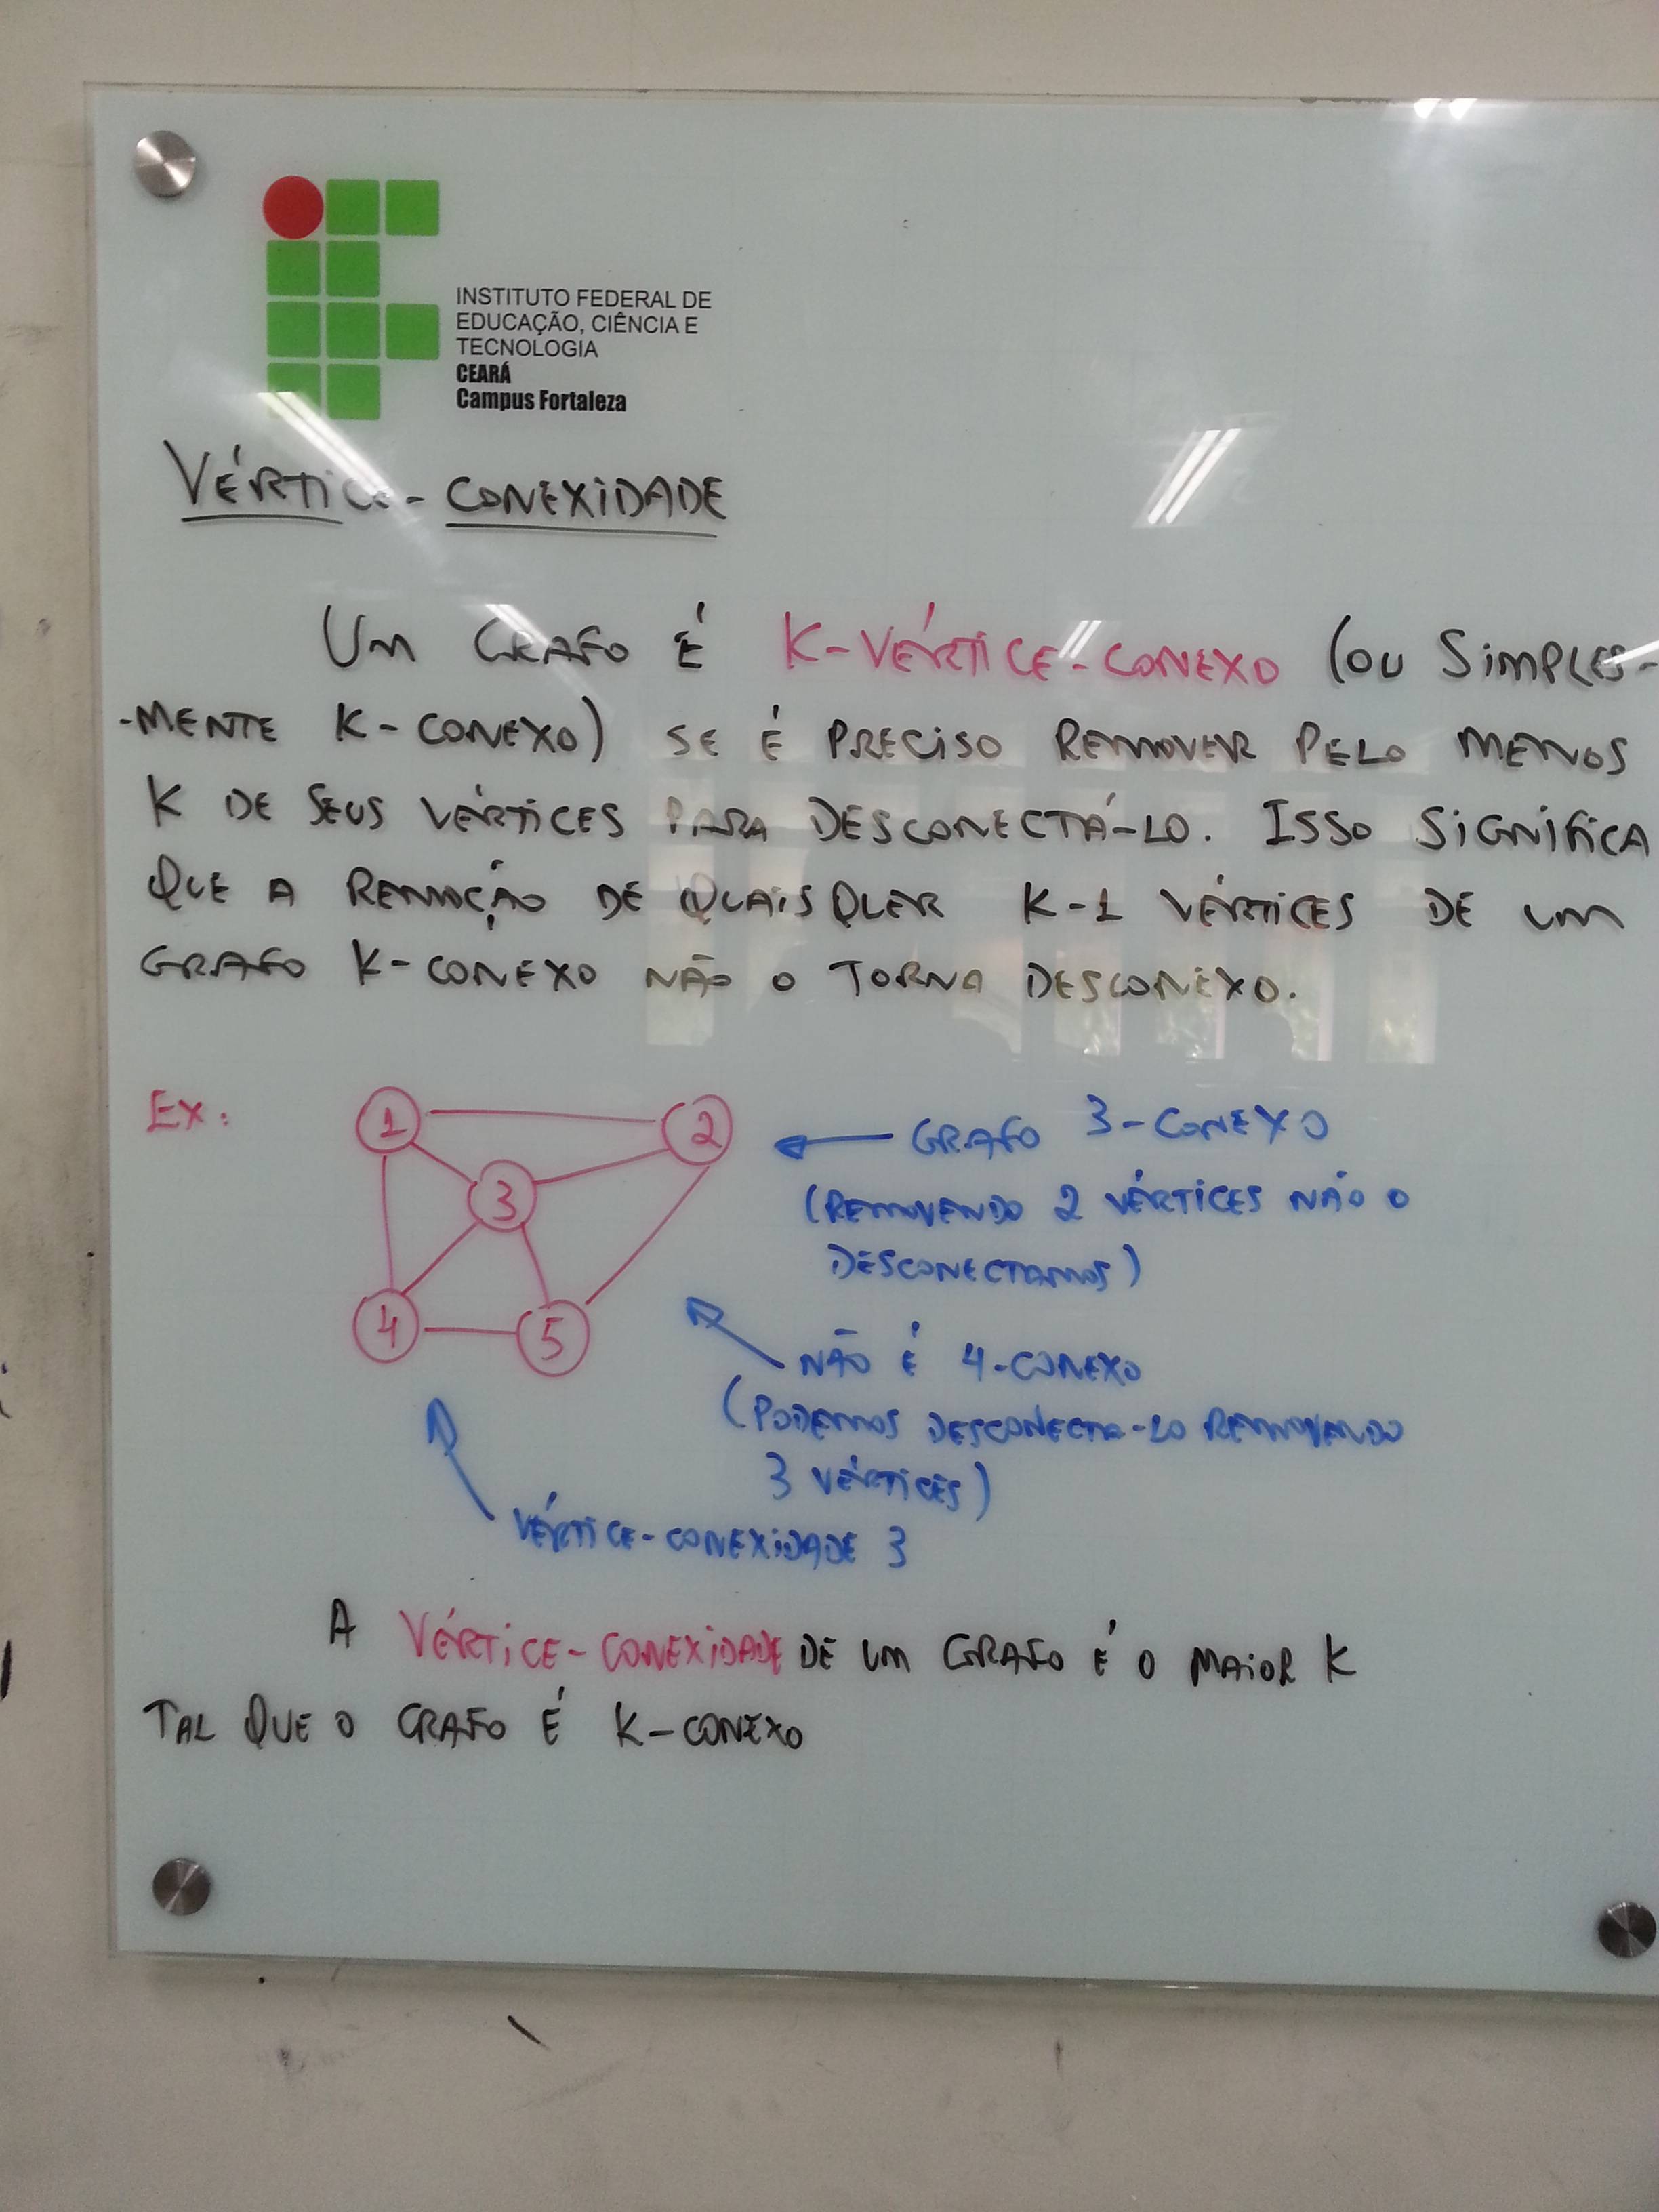 INSTITUTO FEDERAL DE
EDUCAÇÃO, CIÊNCIA E
TECNOLOGIA
CEARÁ
Campus Fortaleza
VÉRTICE-CONEXIDADE
UM GRAFO É K-VÉRTICE-CONEXO (OU SIMPLES-
-MENTE K-CONEXO) SE É PRECISO REMOVER PELO MENOS
K DE SEUS VÉRTICES PARA DESCONECTÁ-LO. ISSO SIGNIFICA
QUE A REMOÇÃO DE QUAISQUER K-1 VÉRTICES DE UM
GRAFO K-CONEXO NÃO O TORNA DESCONEXO.
EX:
1
2
3
4
5
GRAFO 3-CONEXO
(REMOVENDO 2 VÉRTICES NÃO O
DESCONECTAMOS)
NÃO É 4-CONEXO
(PODEMOS DESCONECTA-LO REMOVENDO
3 VÉRTICES)
VÉRTICE-CONEXIDADE 3
A VÉRTICE-CONEXIDADE DE UM GRAFO É O MAIOR K
TAL QUE O GRAFO É K-CONEXO